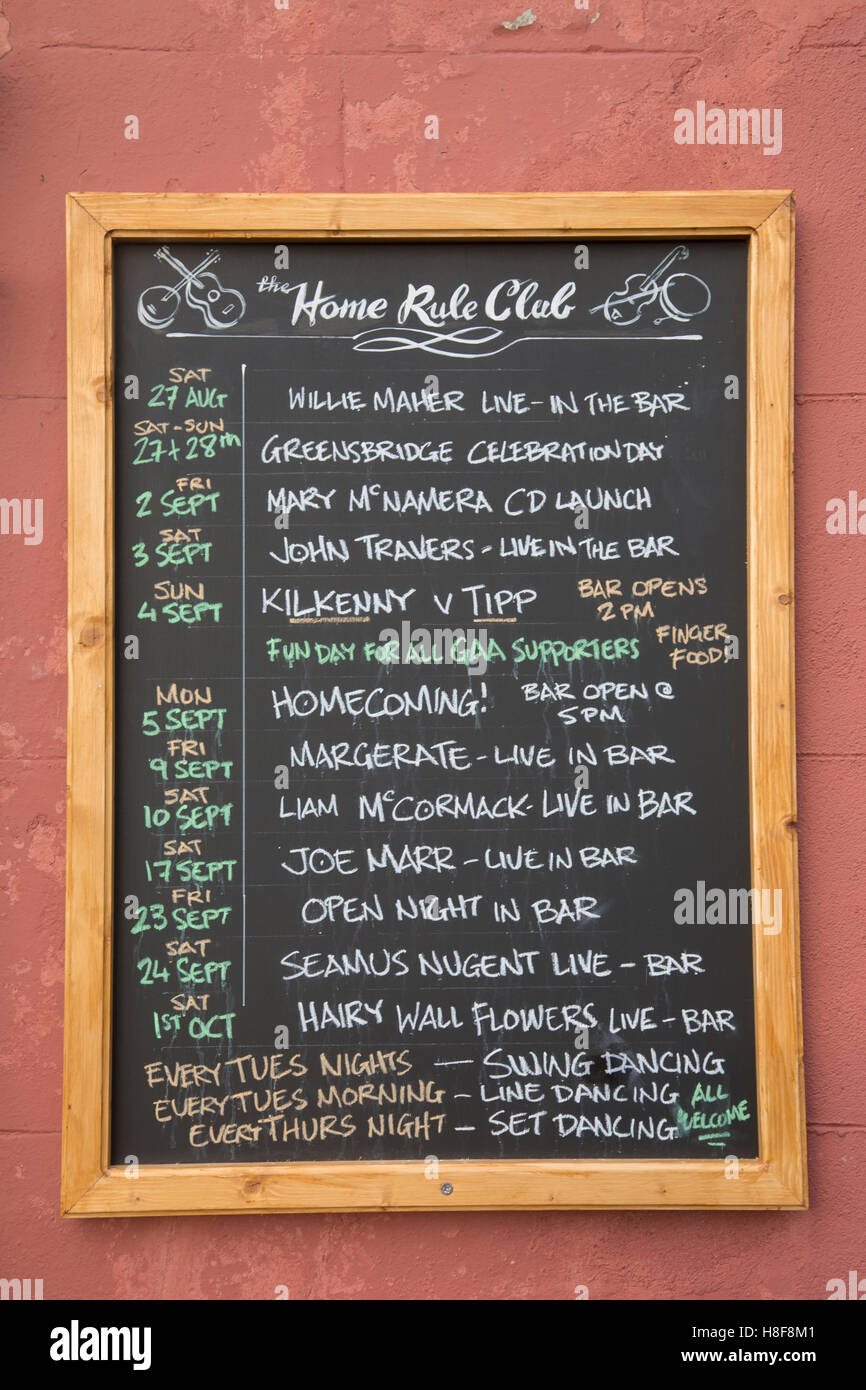 the Home Rule Club
SAT
27 AUG WILLIE MAHER LIVE - IN THE BAR
SAT-SUN
27+28th GREENSBRIDGE CELEBRATION DAY
FRI
2 SEPT MARY McNAMERA CD LAUNCH
SAT
3 SEPT JOHN TRAVERS - LIVE IN THE BAR
SUN BAR OPENS
4 SEPT KILKENNY V TIPP 2 PM
FUN DAY FOR ALL GAA SUPPORTERS FINGER
FOOD!
MON HOMECOMING! BAR OPEN @
5 SEPT 5PM
FRI
9 SEPT MARGERATE - LIVE IN BAR
SAT
10 SEPT LIAM McCORMACK - LIVE IN BAR
SAT
17 SEPT JOE MARR - LIVE IN BAR
FRI
23 SEPT OPEN NIGHT IN BAR
SAT
24 SEPT SEAMUS NUGENT LIVE - BAR
SAT
1ST OCT HAIRY WALL FLOWERS LIVE - BAR
EVERY TUES NIGHTS — SWING DANCING
EVERY TUES MORNING - LINE DANCING ALL
EVERY THURS NIGHT - SET DANCING WELCOME
alamy
a
alamy
Image ID: H8F8M1
www.alamy.com